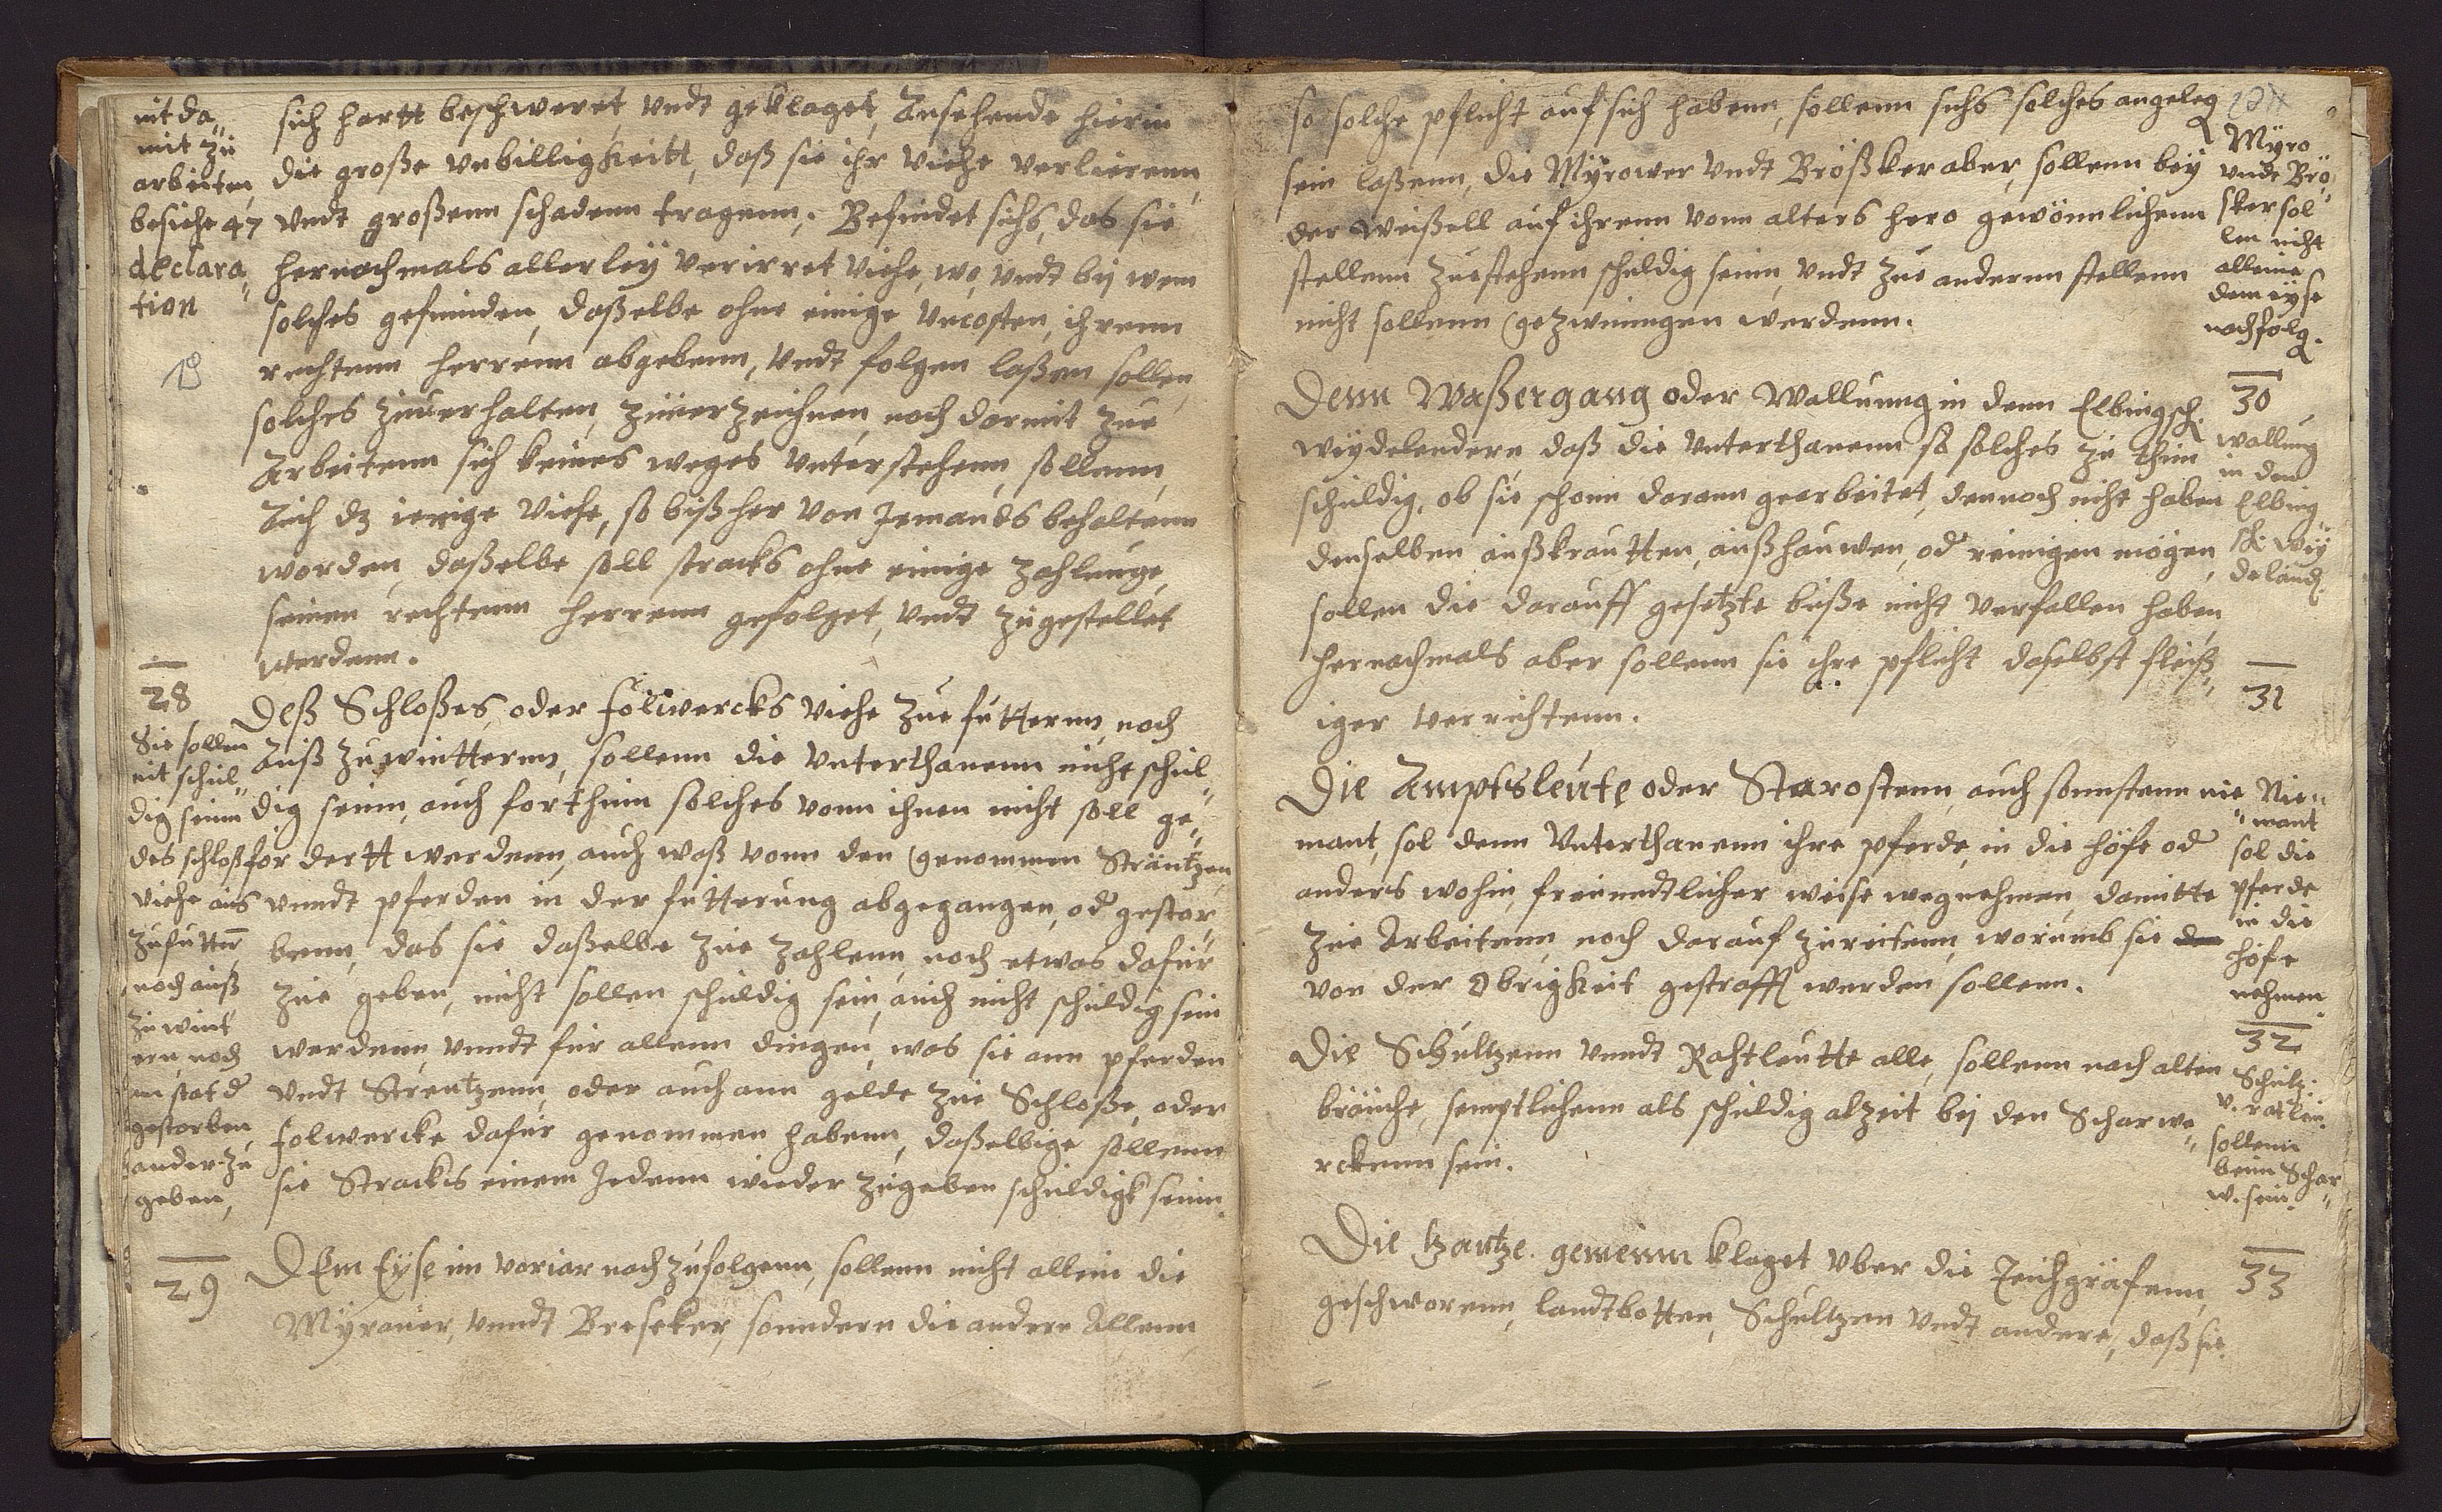 nit da„
mit zu
arbeiten,
besiehe 47
declara„
tion
sich hartt beschweret, vndt geklaget, Ansehende hierin
die große vnbilligkeitt, daß sie ihr Viehe verlierenn,
vndt großenn schadenn tragenn. Befindet sichs, das sie
hernachmals allerley verirret Viehe, wo, vndt bij wem
solches gefunden, daßelbe ohne einige vncosten, ihrenn
rechtenn herrenn abgebenn, vndt folgen laßen sollen
solches zuuerhalten, zuuerzeichnen, noch darmit zue
Arbeitenn sich keines weges vnterstehenn, sollenn,
Auch dz ienige Viehe, so bißher von Jemands behaltenn
worden, daßelbe soll stracks ohne einige zahlunge,
seinen rechtenn herrenn gefolget, vndt zugestellet
werdenn.
28
Sie sollen
nit schul„
dig seinn
des schloß
Viehe aus
zufuttern
noch auß
zu wint
ern, noch
an stat d
gestorben,
ander zu
geben,
Deß Schloßes, oder folwercks Viehe zue futternn, noch
Auß zuwintternn, sollenn die vnterthanenn nicht schul„
dig seinn, auch forthinn solches vonn ihnen nicht soll ge„
fordertt werdenn, auch waß vonn den genommen Sträntzen,
vnndt pferden in der futterung abgegangen, od gestor„
benn, das sie daßelbe zue zahlenn, noch etwas dafur
zue geben, nicht sollen schuldig sein, auch nicht schuldig sein
werdenn, vnndt fur allenn dingen, was sie ann pferden
vndt Strentzenn, oder auch ann gelde zue Schloße, oder
folwercke dafur genommen habenn, daßelbige sollenn
sie Strackts einem Jedenn wieder zugeben schuldigk seinn.
29
DEm Eyse im vorjar nachzufolgenn, sollenn nicht allein die
Myrauer, vnndt Breseker, sonndern die andere Allenn
so solche pflicht auf sich habenn, sollenn sichs solches angeleg
sein laßenn, die Myrower vndt Broßker aber, sollenn bey
der Weißell auf ihrenn vonn alters hero gewönnlichenn
stellenn zuestehenn schuldig seinn, vndt zue anderenn stellenn
nicht sollenn gezwiningen werdenn.
Myro
vnde Brö„
sker sol
len nicht
alleine
dem eyse
nachfolg.
Denn Waßergang oder Wallunng in denn Elbingsch.
Wydelendern, daß die vnterthanenn so solches zu thun
schuldig, ob sie schonn darann gearbeitet, dennoch nicht haben
denselben außkrautten, außhauwen, od reinigen mögen,
sollen die darauff gesetzte buße nicht verfallen haben,
hernachmals aber sollenn sie ihre pflicht daselbst fleiß„
iger verrichtenn.
30
wallung
in den
Elbing
sk. wij
deländ.
31
Die Amptsleute oder Starostenn, auch sonnstenn nie
mant, sol denn Vnterthanenn ihre pferde, in die höfe od
anders wohin, freunndtlicher weise wegnehmen, damitte
zue Arbeitenn, noch darauf zureitenn, worumb sie
von der Obrigkeit gestrafft werden sollenn.
Nie„
„mant
sol die
pferde
in die
höfe
nehmen.
Die Schultzenn vnndt Rahtleutte alle, sollenn nach alten
bräuche, semptlichenn als schuldig alzeit bij den Scharwe„
rckenn sein.
32
Schultz.
v. ratleu.
sollenn
beim Schar„
w. sein.
Die tzantze. gemeinn klaget vber die Teichgräfenn,
geschworenn, landtbotten, Schultzen vndt andere, daß sie
33